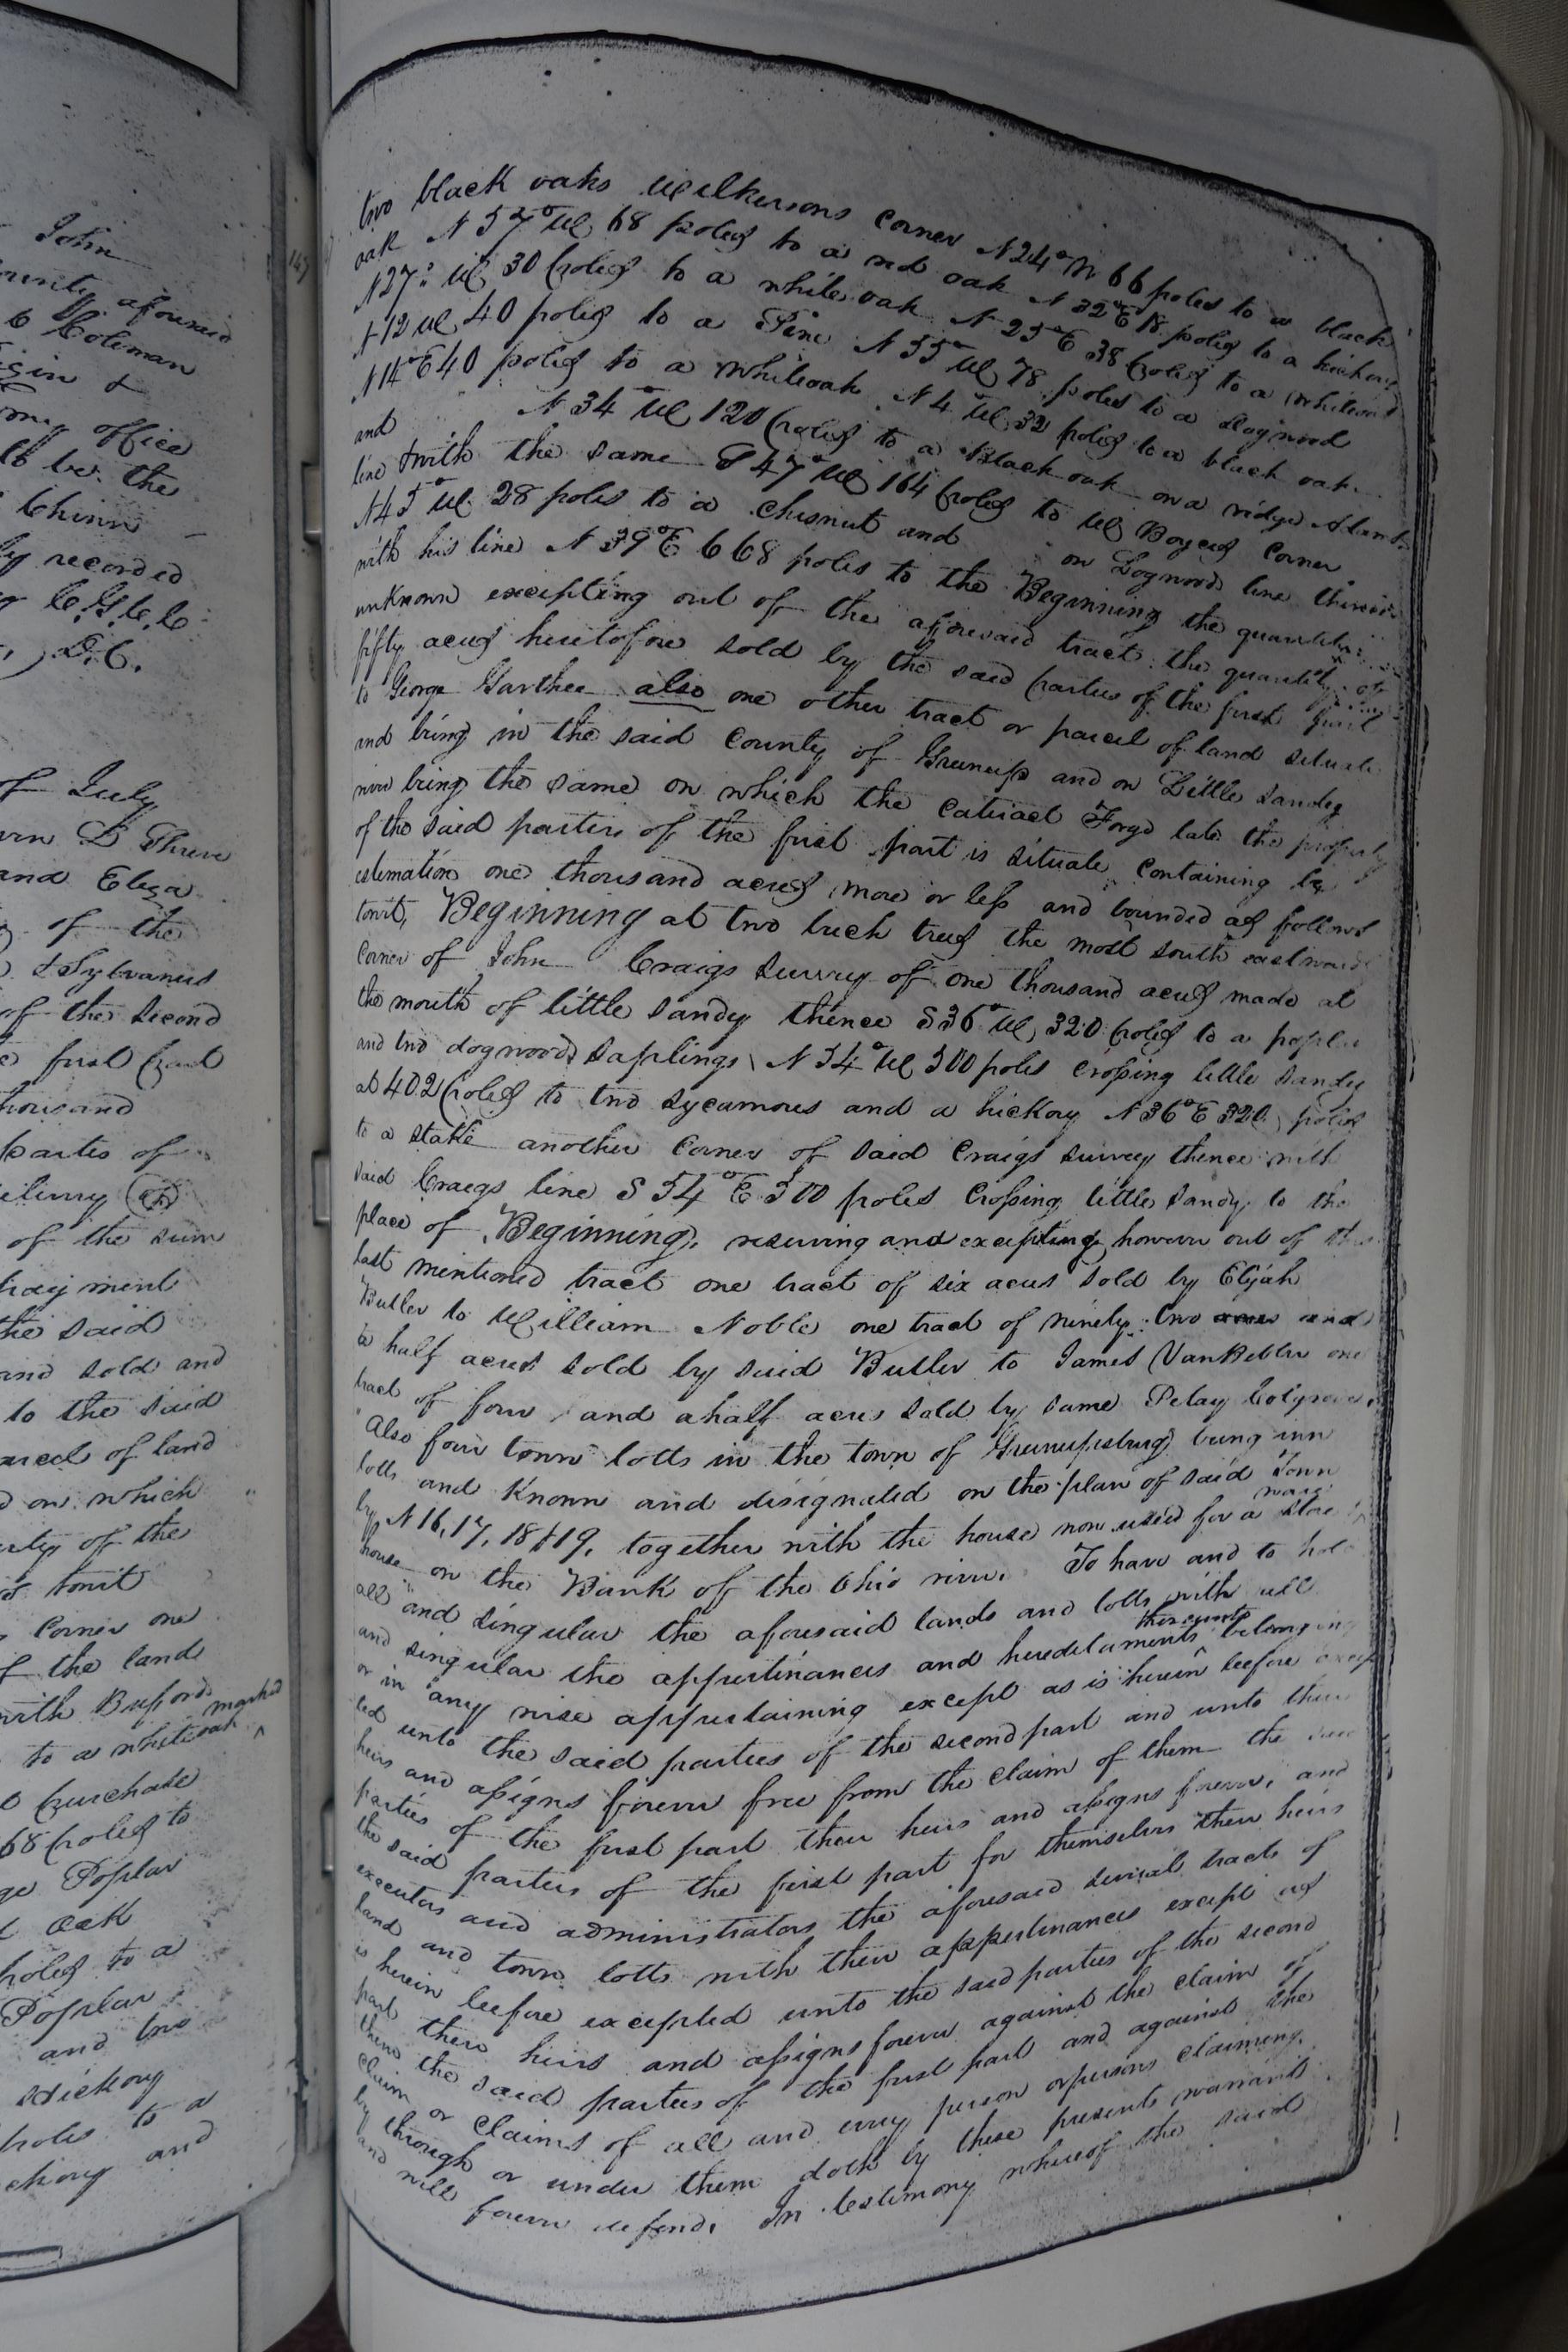 John
county aforesaid
& Coleman
office
to be the
Chinn
recorded
of July
and Eliza
of the
& Sylvanus
of the second
first part
thousand
parties of
of the sum
payment
the said
and sold and
to the said
parcel of land
on which
property of the
towit
Corner one
of the land
with Bufords
marked
to a whiteoak
purchase
68 poles to
Poplar
oak
poles to a
Poplar
and two
Hickory
poles to a
and
two black oaks Wilkersons corner N24°W 66 poles to a black
oak N57°W 68 poles to a red oak N32°E 18 poles to a hickory
N27°W 30 poles to a white oak N25°E 38 poles to a whiteoak
N12W 40 poles to a Pine N55°W 78 poles to a dogwood
N14°E 40 poles to a whiteoak N4°W 32 poles to a black oak
and N34°W 120 poles to a Black oak on a ridge
line & with the same S47°W 164 poles to W Boyces corner
N45°W 28 poles to a chesnut and on Logwoods line thence
with his line N39°E 668 poles to the Beginning the quantity
unknown excepting out of the aforesaid tract the quantity of
fifty acres heretofore sold by the said parties of the first part
to George Garthee also one other tract or parcel of land situate
and being in the said county of Greenup and on Little Sandy
river being the same on which the Cataract Forge late the property
of the said parties of the first part is situate containing by
estimation one thousand acres more or less and bounded as follows
towit, Beginning at two beech trees the most south eastward
corner of John Craigs survey of one thousand acres made at
the mouth of little Sandy thence S36°W 320 poles to a poplar
and two dogwood saplings N54°W 500 poles crossing little Sandy
at 402 poles to two sycamores and a hickory N36°E 320 poles
to a stake another corner of said Craigs survey thence with
said Craigs line S54°E 500 poles crossing little Sandy to the
place of Beginning, reserving and excepting however out of the
last mentioned tract one tract of six acres sold by Elijah
Butler to William Noble one tract of ninety two acres and
a half acres sold by said Butler to James VanBebber one
tract of four and a half acres sold by same Pelay
Also four town lotts in the town of Greenupsburg being inn
lotts and known and designated on the plan of said Town
by N 16, 17, 18 & 19, together with the house now used for a ware
house on the Bank of the Ohio river. To have and to hold
all and singular the aforesaid lands and lotts with all
and singular the appertinances and hereditaments thereunto belonging
or in any wise appertaining except as is herein before excep
ted unto the said parties of the second part and unto their
heirs and assigns forever free from the claim of them the said
parties of the first part their heirs and assigns forever, and
the said parties of the first part for themselves their heirs
executors and administrators the aforesaid several tracts of
land and town lotts with their appertinances except as
is herein before excepted unto the said parties of the second
part their heirs and assigns forever against the claim of
them the said parties of the first part and against the
claim or claims of all and every person or persons claiming
by through or under them doth by these presents warrant
and will forever defend. In testimony whereof the said